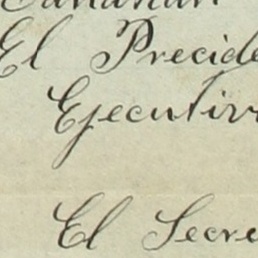 El Preside
Ejecutiv
El Secre